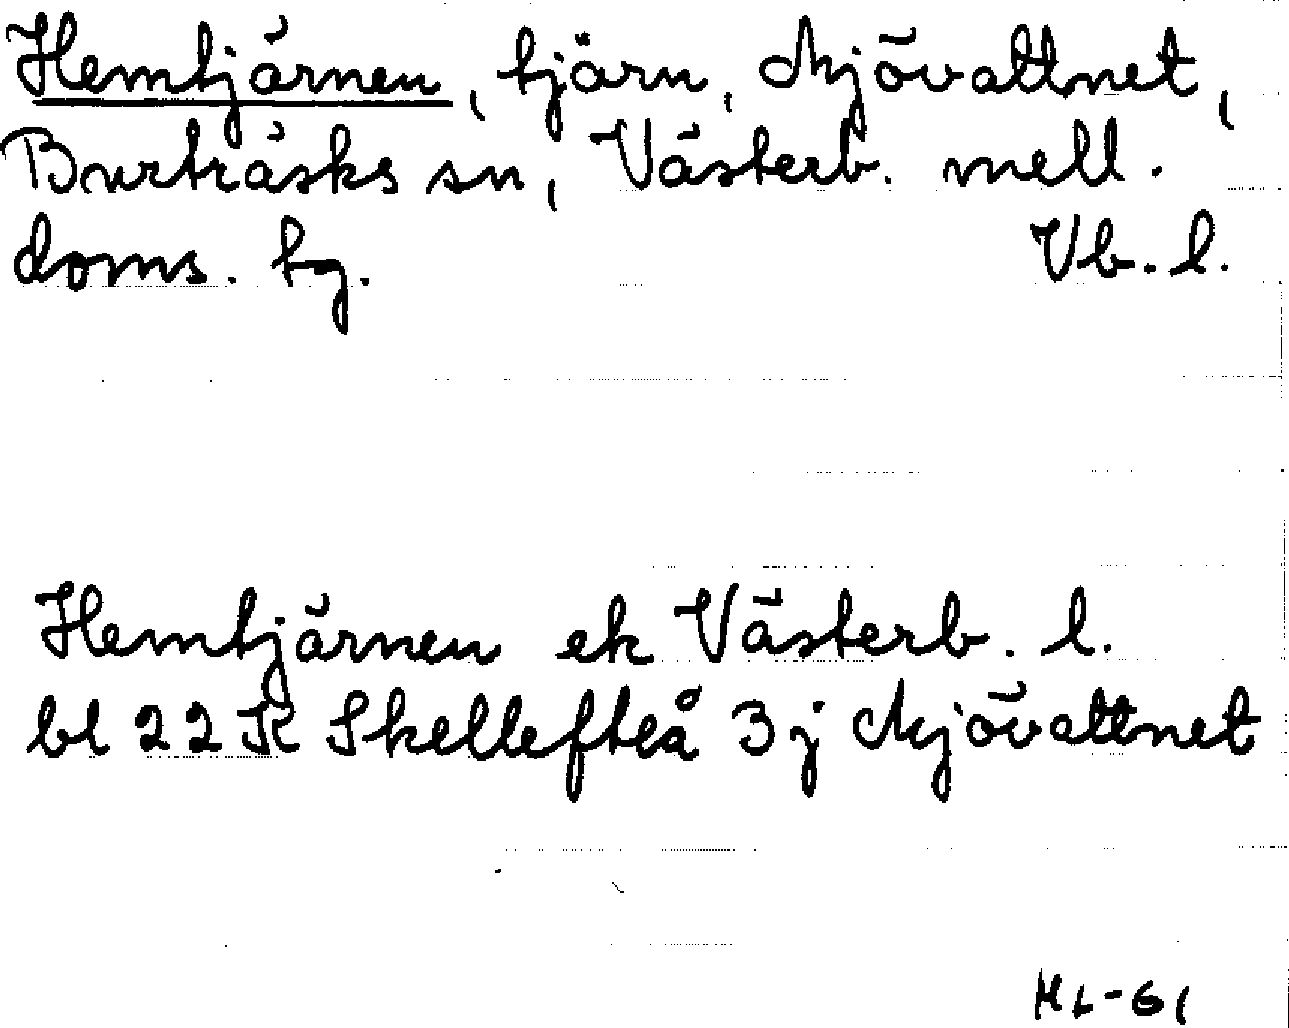 Hemtjärnen, tjärn, Mjövattnet,
Burträsks sn, Västerb. mell.
doms. tg. Vb. l.
Hemtjärnen ek Västerb. l.
bl 22 K Skellefteå 3 j Mjövattnet
HL-61